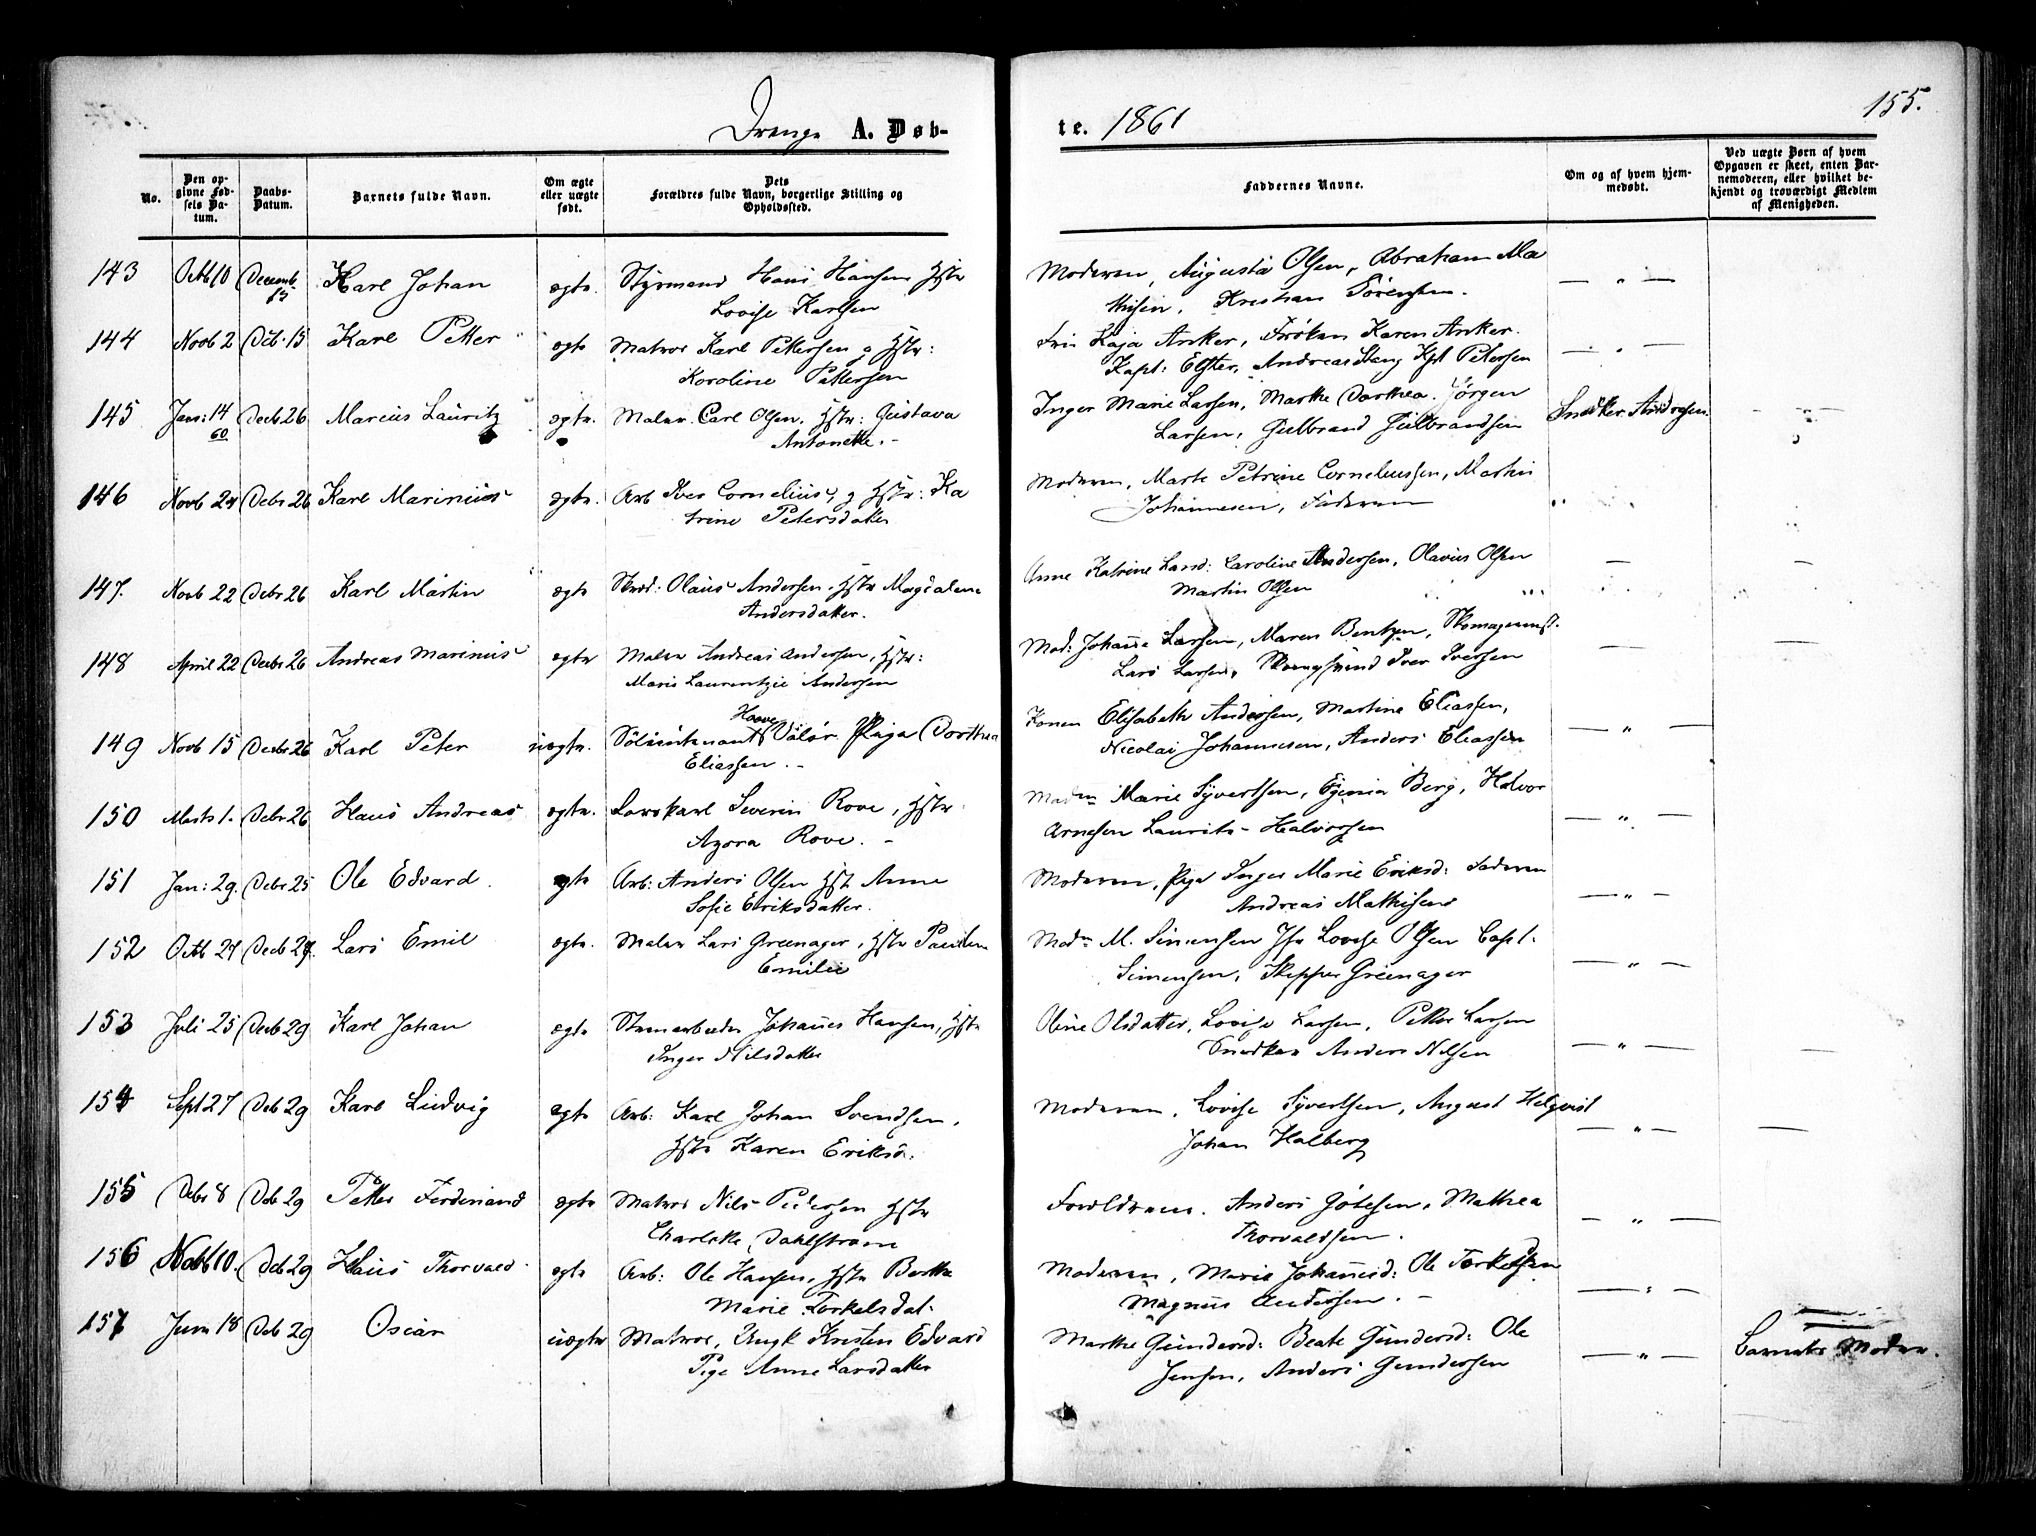 Drenge A. Døb-
te. 1861
155.
No.
Den op-
givne Fød-
sels Da-
tum.
Daabs-
Datum.
Barnets fulde Navn.
Om ægte
eller uægte
født.
Dets
Forældres fulde Navn, borgerlige Stilling og
Opholdssted.
Faddernes Navne.
Om og af hvem hjem-
medøbt.
Ved uægte Børn af hvem
Opgaven er skeet, enten Bar-
nemoderen, eller hvilket be-
kjendt og troværdigt Medlem
af Menigheden.
143 Octb 10 Decemb. 15 Karl Johan ægte. Styrmand Hans Hansen Hstr
Lovise Karlsen
Moderen, Augusta Olsen, Abraham Ma
thisen, Kristian Sørensen. — " —
144 Novb 2 Deb. 15 Karl Petter ægte Matros Karl Pettersen og Hstr:
Karoline Pettersen
Kaja Anker, Frøken Karen Anker.
Kapt: Elster, Andreas Stang Kpt Petersen
145 Jan: 14 60 Decb 26 Marcus Lauritz ægte. Maler Carl Olsen, Hstr: Gustava
Antonette. -
Inger Marie Larsen, Marthe Dorthea. Jörgen
Larsen, Gulbrand Gulbrandsen
Snedker Andresen.
146 Novb 24 Debr 26 Karl Marinius ægte. Arb Iver Cornelius, og Hstr: Ka
trine Petersdatter
Moderen, Marte Petrine Corneliussen, Martin
Johannesen, Faderen
147. Novb 22 Debr 26 Karl Martin ægte Olaus Andersen, Hstr Magdalene
Andersdatter.
Anne Katrine Larsd: Caroline Andersen, Olavus Olsen
Martin Olsen
148 April 22 Decbr 26 Andreas Marinius ægte Maler Andreas Andersen, Hstr:
Maris Laurentzie Andersen
Mod: Johanne Larsen, Maren Bentzen,
Lars Larsen, Iver Iversen
149 Novb 15 Decbr 26 Karl Peter uægte. Pige Dorthea
Eliassen. -
Konen Elisabeth Andersen, Martine Eliassen,
Nicolai Johannesen, Anders Eliassen
150 Marts 1. Debr 26 Hans Andreas ægte. Severin Rove, Hstr
Agora Rove. -
Marie Syvertsen, Berg, Halvor
Arnesen Laurits Halvorsen
151 Jan: 29. Debr 25 Ole Edvard ægte Arb: Anders Olsen Hst Anne
Sofie Eriksdatter.
Moderen, Pige Inger Marie Eriksd: Faderen
Andreas Mathisen
152 Octb 24 Decb 29. Lars Emil ægte. Maler Lars Greenager, Hstr Pauline
Emilie
M. Simensen Jfr Lovise Olsen Capt.
Simensen, Skipper Greenager
153 Juli 25 Decb 29 Karl Johan ægte Johannes Hansen, Hstr
Inger Nilsdatter
Oline Olsdatter, Lovise Larsen, Petter Larsen
Snedker Anders Nilsen
154 Sept 27 Deb 29 Karl Ludvig ægte Arb: Karl Johan Svendsen,
Hstr Karen Eriksd:
Moderen, Lovise Syvertsen, August Helqvist
Johan Halberg
155 Debr 8 Deb 29 Petter Ferdinand ægte Matros Nils Pedersen Hstr
Charlotte Dahlstrøm
Forældrene. Anders Götesen, Mathea
Thorvaldsen.
156 Novb 10. Deb 29 Hans Thorvald ægte Arb: Ole Hansen, Hstr Berthe
Marie Torkelsdat.
Moderen, Marie Johannesd: Ole Torkelsen
Magnus Andersen. -
157 Juni 18 Deb 29 Oscar uægte Matros, Ungk Kristen Edvard
Pige Anne Larsdatter
Marthe Gundersd: Beate Gundersd: Ole
Jensen, Anders Gundersen
Barnets Moder.